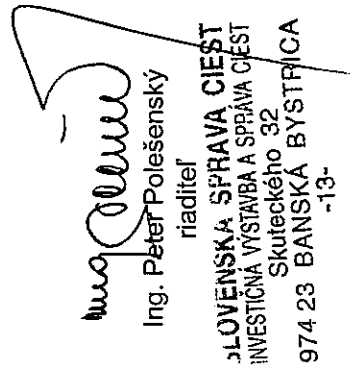 Ing. Peter Polešenský
riaditeľ
SLOVENSKÁ SPRÁVA CIEST
INVESTIČNÁ VÝSTAVBA A SPRÁVA CIEST
Skuteckého 32
974 23 BANSKÁ BYSTRICA
-13-